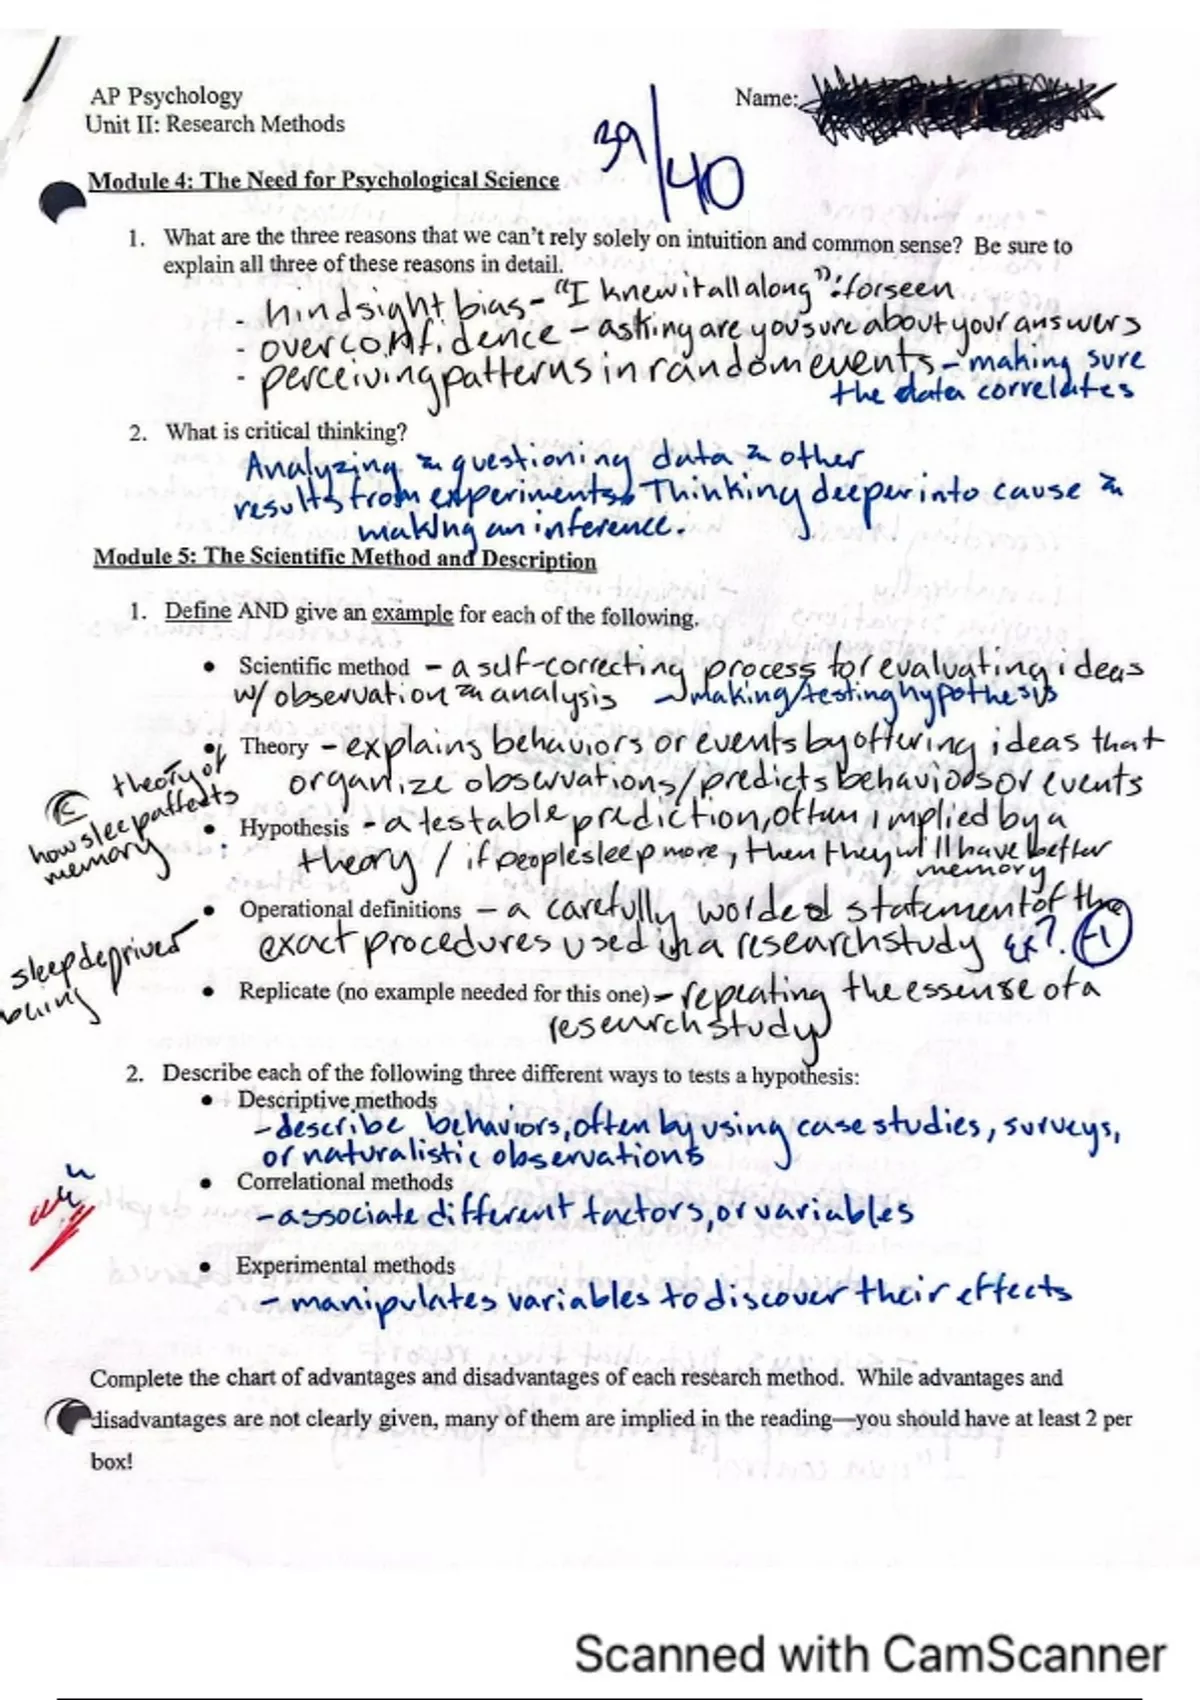 AP Psychology
Name:
Unit II: Research Methods
39/40
Module 4: The Need for Psychological Science
1. What are the three reasons that we can't rely solely on intuition and common sense? Be sure to
explain all three of these reasons in detail.
- hindsight bias - "I knew it all along": forseen
- overconfidence - asking are you sure about your answers
- perceiving patterns in random events - making sure
the data correlates
2. What is critical thinking?
Analyzing & questioning data & other
results from experiments. Thinking deeper into cause &
making an inference.
Module 5: The Scientific Method and Description
1. Define AND give an example for each of the following.
• Scientific method - a self-correcting process for evaluating ideas
w/ observation & analysis - making/testing hypothesis
• Theory - explains behaviors or events by offering ideas that
organize observations/predicts behaviors or events
theory of
how sleep affects
memory
• Hypothesis - a testable prediction, often implied by a
theory / if people sleep more, then they will have better
memory
• Operational definitions - a carefully worded statement of the
exact procedures used in a research study ex? -1
sleep deprived
• Replicate (no example needed for this one) - repeating the essense of a
research study
2. Describe each of the following three different ways to tests a hypothesis:
• Descriptive methods
- describe behaviors, often by using case studies, surveys,
or naturalistic observations
• Correlational methods
- associate different factors, or variables
• Experimental methods
- manipulates variables to discover their effects
Complete the chart of advantages and disadvantages of each research method. While advantages and
disadvantages are not clearly given, many of them are implied in the reading—you should have at least 2 per
box!
Scanned with CamScanner